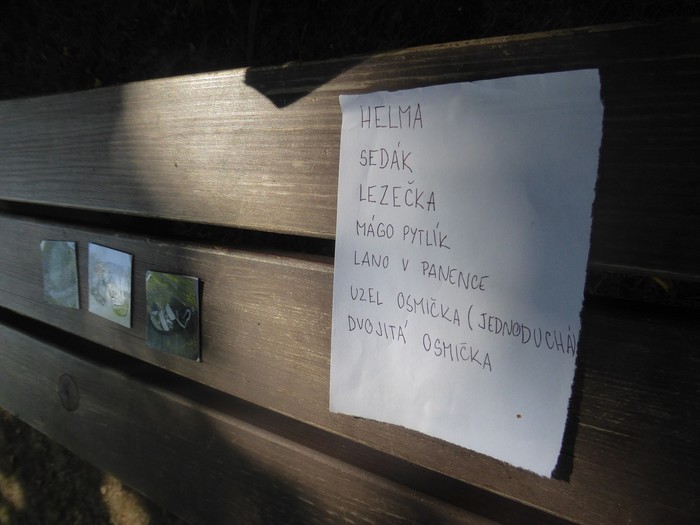 HELMA
SEDÁK
LEZEČKA
MÁGO PYTLÍK
LANO V PANENCE
UZEL OSMIČKA (JEDNODUCHÁ)
DVOJITÁ OSMIČKA